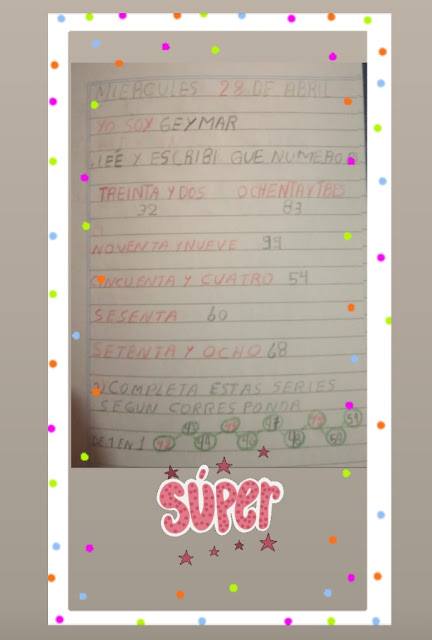 MIERCOLES 28 DE ABRIL
YO SOY GEYMAR
LEÉ Y ESCRIBI QUE NUMERO
TREINTA Y DOS OCHENTA Y TRES
32 83
NOVENTA INUEVE 99
CINCUENTA Y CUATRO 54
SESENTA 60
SETENTA Y OCHO 68
2) COMPLETA ESTAS SERIES
SEGUN CORRESPONDA
DE 1 EN 1
SÚPER